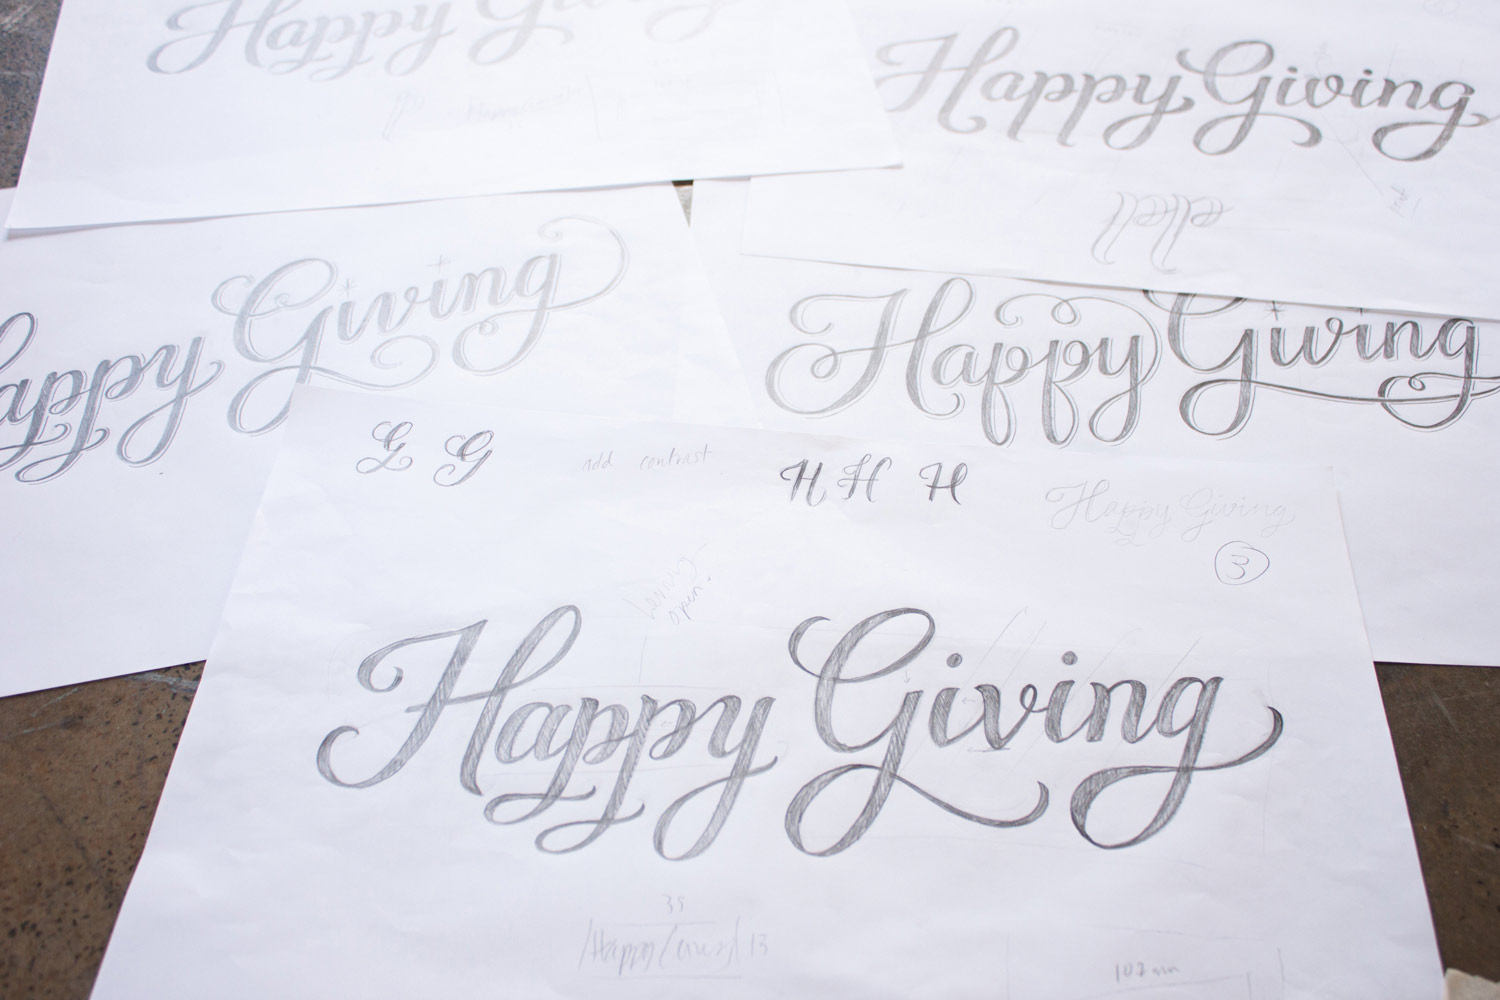 Happy Giving
Happy Giving
Happy Giving
Happy Giving
G G
add contrast
H H H
Happy Giving
3
open
Happy Giving
35
Happy 13